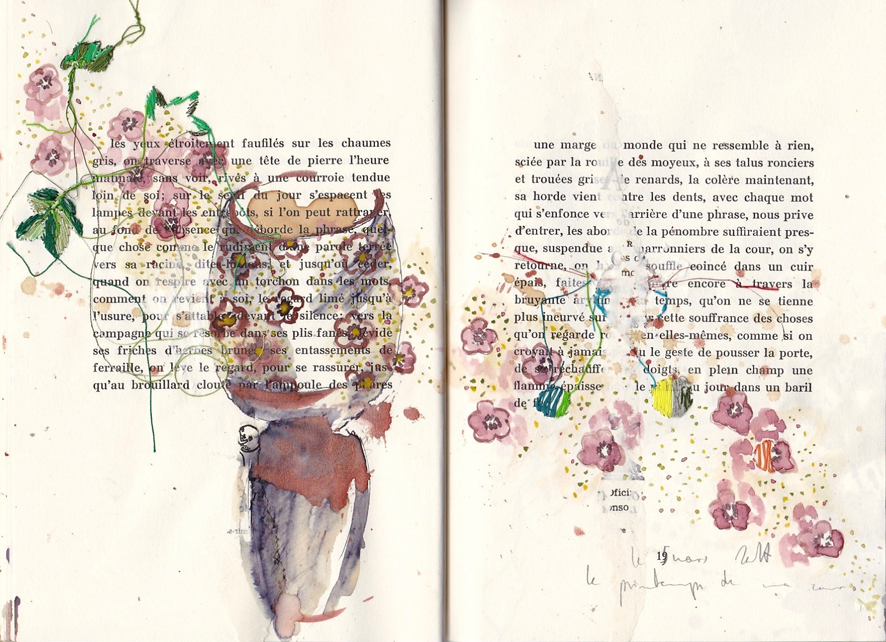 les yeux étroitement faufilés sur les chaumes
gris, on traverse avec une tête de pierre l'heure
matinale, sans voir, rivés à une courroie tendue
loin de soi; sur le seuil du jour s'espacent les
lampes devant les entrepôts, si l'on peut rattraper,
au fond de l'absence qui déborde la phrase, quel-
que chose comme le rudiment d'une parole terrée
vers sa racine, et jusqu'où céder,
quand on respire avec un torchon dans les mots,
comment on revient à soi, le regard limé jusqu'à
l'usure, pour s'attabler devant le silence; vers la
campagne qui se résorbe dans ses plis fanés, dévide
ses friches d'herbes brunes, ses entassements de
ferraille, on lève le regard, pour se rassurer, jus-
qu'au brouillard clouté par l'ampoule des phares
une marge du monde qui ne ressemble à rien,
sciée par la rouille des moyeux, à ses talus ronciers
et trouées grises de renards, la colère maintenant,
sa horde vient contre les dents, avec chaque mot
qui s'enfonce vers l'arrière d'une phrase, nous prive
d'entrer, les abords de la pénombre suffiraient pres-
que, suspendue marronniers de la cour, on s'y
retourne, on souffle coincé dans un cuir
épais, faites encore à travers la
bruyante temps, qu'on ne se tienne
plus incurvé sur cette souffrance des choses
qu'on regarde en elles-mêmes, comme si on
croyait à jamais le geste de pousser la porte,
de se réchauffer doigts, en plein champ une
flamme épaisse le jour dans un baril
de
ofici
onso
19
le mars
le printemps de